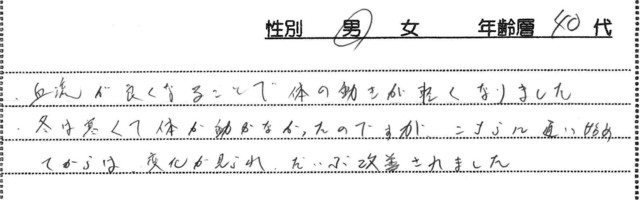 性別 男 女 年齢層 40 代
・血流が良くなることで体の動きが軽くなりました
・冬は寒くて体が動かなかったのですが こちらに通い始め
てからは、変化が見られ、だいぶ改善されました